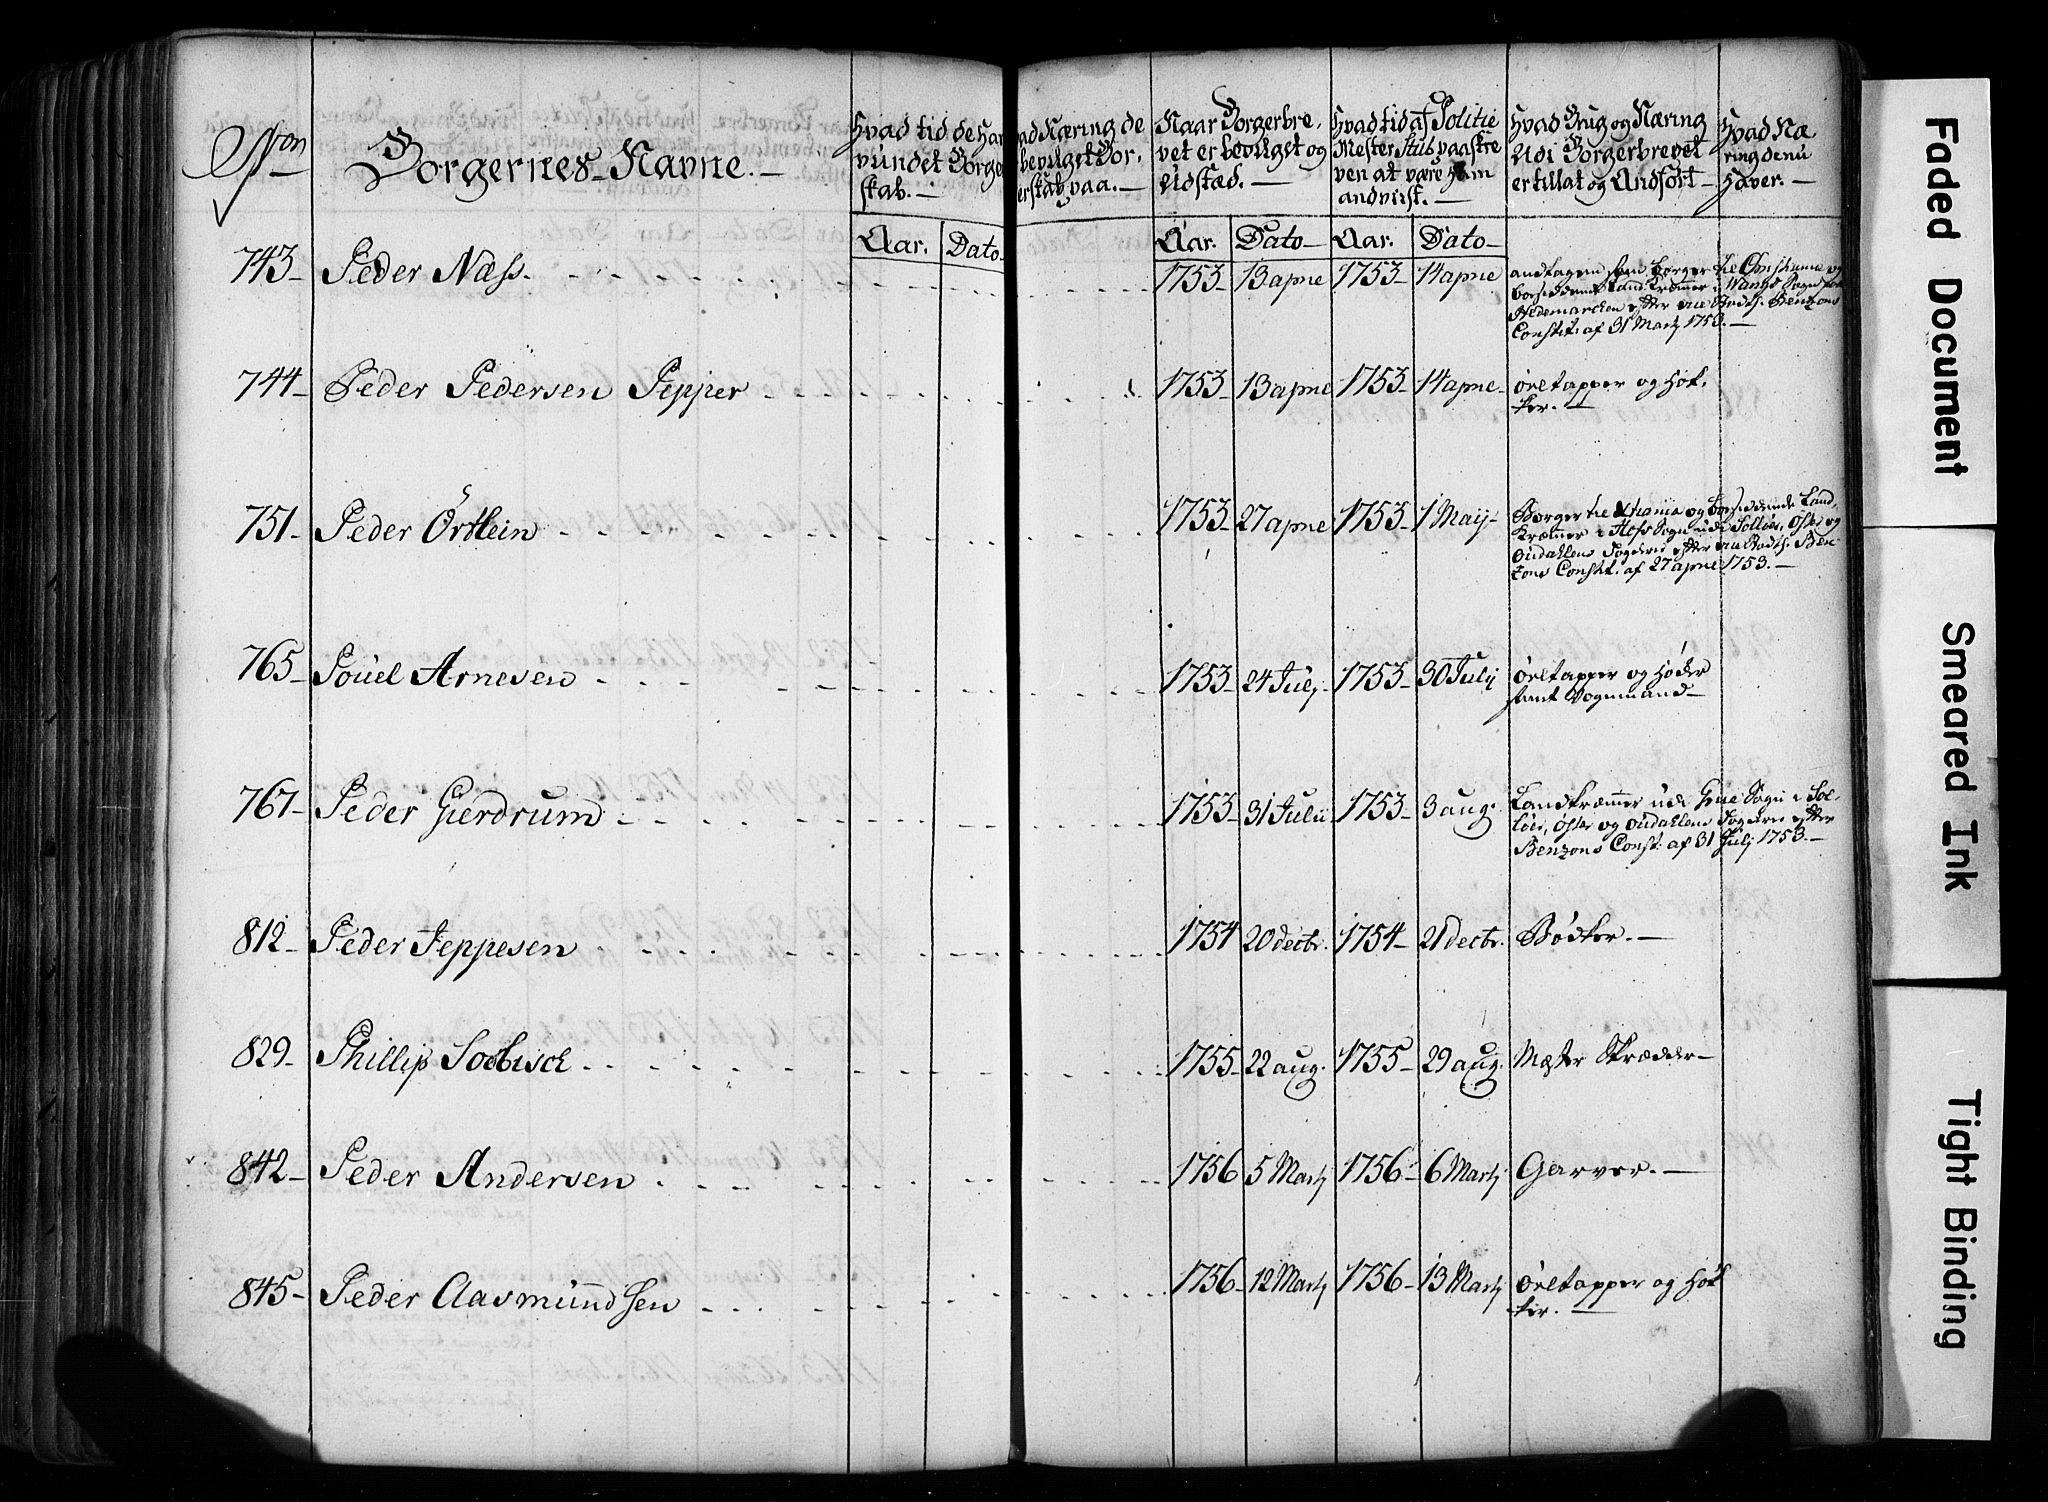 Nrm Borgernes Navne.—
Hvad tid de har
vundet Borger
skab.—
Aar. Dato
ad Næring de
bevilget Bor,
erskab paa.—
Naar Borgerbre,
vet er bevilget og
Udstæd.—
Aar. Dato
Hvad tid af Politie
Mester Stub paaskre
ven at være ham
andviist.—
Aar. Dato
Hvad Brug og Næring
Udi Borgerbrevet
er tillat og Andført
Hvad Næ
ring de nu
haver.—
743 Peder Næss. 1753 13 apne 1753 14 apne
andtagen som borger
Landkræmer i Wangs Sogn
Hedemarcken efter Benzons
Constit: af 31 Marty 1753.—
744 Peder Pedersen Pepper 1753 13 apne 1753 14 apne øeltapper og høk,
ker.—
751 Peder Örtlein 1753 27 apne 1753 1 Maij
Borger og Land,
kræmer i Sogn udi Solløer, Øster og
Oudahlens Fogderie efter Ben
zons Constit. af 27 apne 1753.—
765 Pouel Arnesen 1753 24 July 1753 30 July øeltapper og høcker
samt Vognmand
767 Peder Gierdrum 1753 31 Julii 1753 3 aug.
Landkræmmer udi Grue Sogn i Sol,
løer, Øster og Oudahlens Fogderie efter
Benzons Const: af 31 July 1753.—
812 Peder Jeppesen 1754 20 decbr. 1754 21 decbr. Bødker.—
829 Phillip Soebisch 1755 22 aug. 1755 29 aug. Mester Skrædder
842 Peder Andersen 1756 5 Marty 1756 6 Marty Garver.—
845 Peder Aasmundsen 1756 12 Marty 1756 13 Marty øeltapper og høk
ker.—
Faded Document
Smeared Ink
Tight Binding